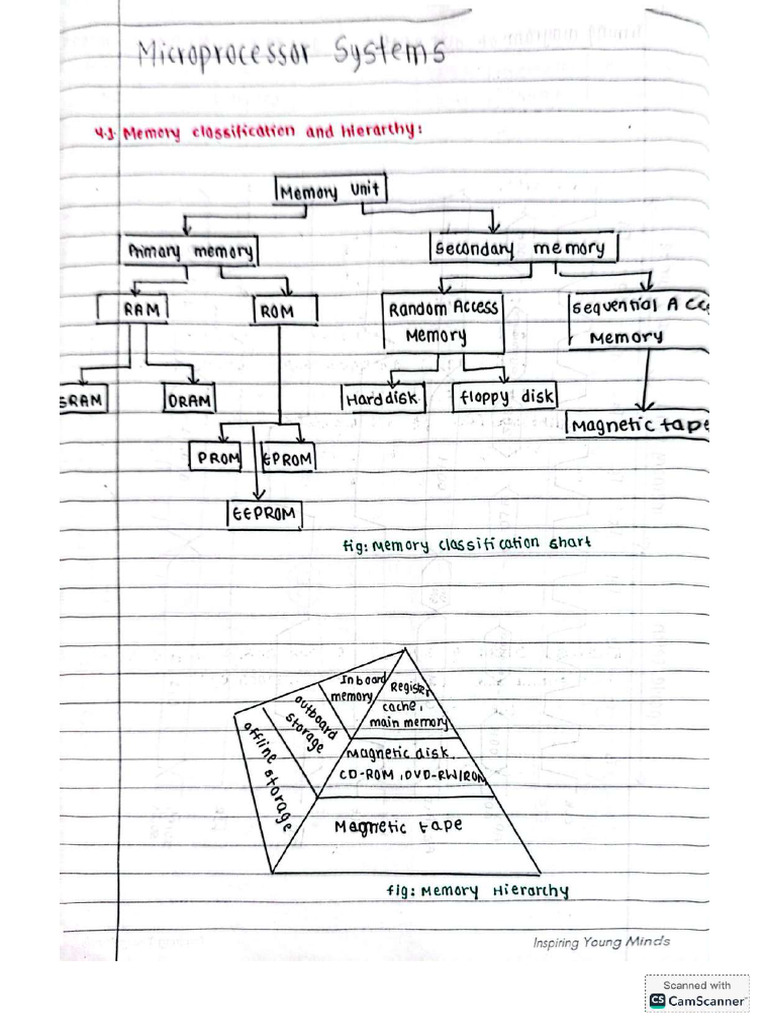 Microprocessor Systems
4.1 Memory classification and hierarchy:
Memory unit
Primary memory
Secondary memory
RAM
ROM
Random Access
Memory
Sequential Acc
Memory
SRAM
DRAM
Harddisk
floppy disk
Magnetic tape
PROM
EPROM
EEPROM
fig: Memory classification shart
Inboard
memory
Register,
cache,
main memory
outboard
storage
Magnetic disk,
CD-ROM, DVD-RW/ROM
offline storage
Magnetic tape
fig: Memory Hierarchy
Inspiring Young Minds
Scanned with
CS CamScanner